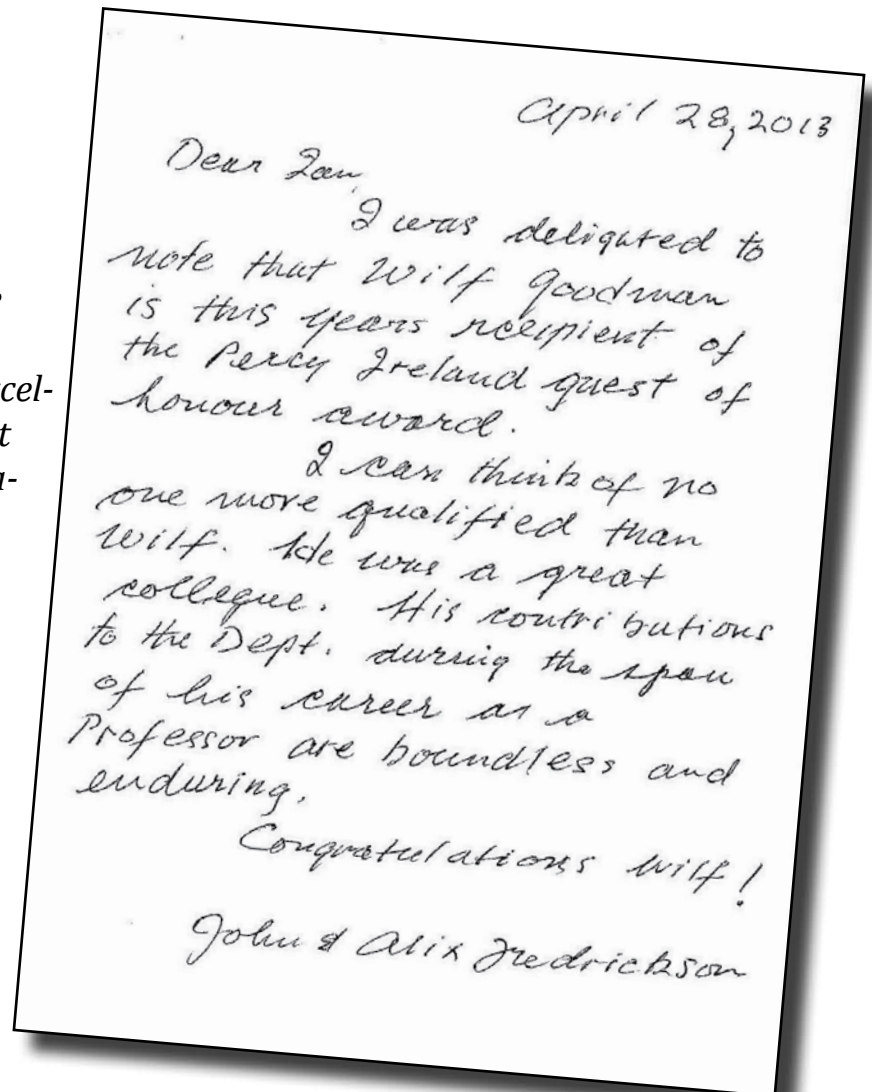 April 28, 2013
Dear Ian,
I was delighted to
note that Wilf Goodman
is this years recipient of
the Percy Ireland guest of
honour award.
I can think of no
one more qualified than
Wilf. He was a great
collegue. His contributions
to the Dept. during the span
of his career as a
Professor are boundless and
enduring.
Congratulations Wilf!
John & Alix Fredrickson
xcel-
t
a-